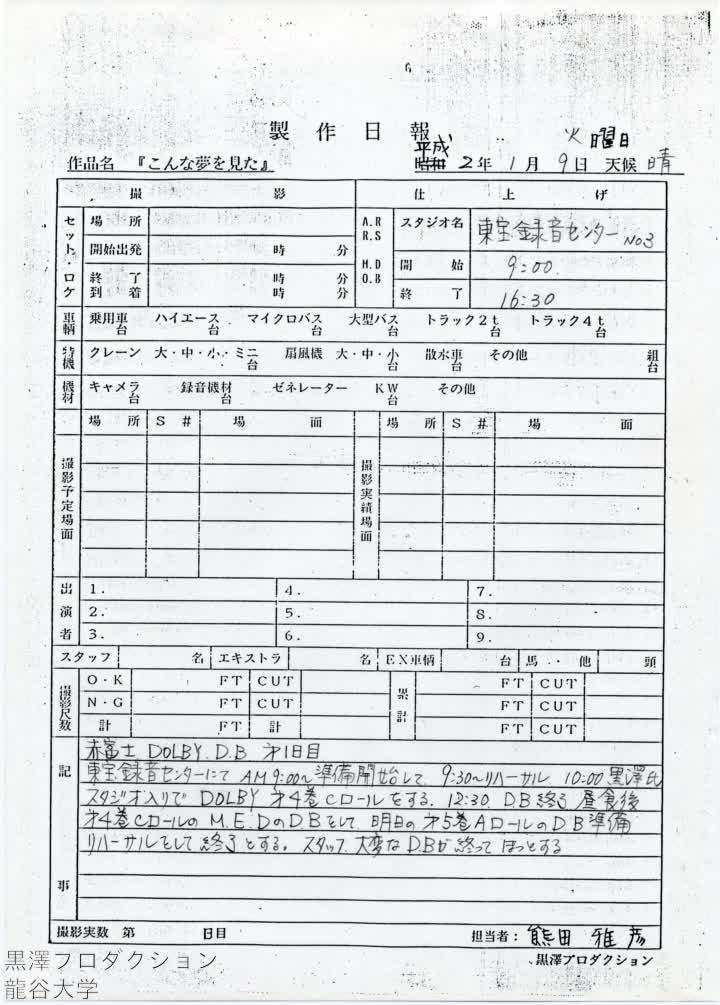 製作日報
火曜日
作品名 『こんな夢を見た』 平成 昭和 2年 1月 9日 天候 晴
撮影 仕上げ
セット・ロケ 場所 A.R R.S M.D O.B スタジオ名 東宝録音センター No3
開始出発 時 分 開始 9:00.
終了到着 時 分 終了 16:30
車輌 乗用車 台 ハイエース 台 マイクロバス 台 大型バス 台 トラック2t 台 トラック4t 台
特機 クレーン 大・中・小・ミニ 台 扇風機 大・中・小 台 散水車 台 その他 組 台
機材 キャメラ 台 録音機材 台 ゼネレーター KW 台 その他
場所 S# 場面 場所 S# 場面
撮影予定場面 撮影実績場面
出演者 1. 4. 7.
2. 5. 8.
3. 6. 9.
スタッフ 名 エキストラ 名 EX車輌 台 馬・他 頭
撮影尺数 O・K FT CUT 累計 FT CUT
N・G FT CUT FT CUT
計 FT 計 FT CUT
記事 赤富士 DOLBY. D.B 第1日目
東宝録音センターにて AM9:00〜準備開始して、9:30〜リハーサル、10:00 黒澤氏
スタジオ入りで DOLBY 第4巻Cロールをする。12:30 D.B終る 昼食後
第4巻CロールのM.E.DのD.Bをして、明日の第5巻AロールのD.B準備
リハーサルをして終了とする。スタッフ、大変なD.Bが終ってほっとする
撮影実数 第 日目 担当者: 熊田雅彦
黒澤プロダクション
黒澤プロダクション
龍谷大学